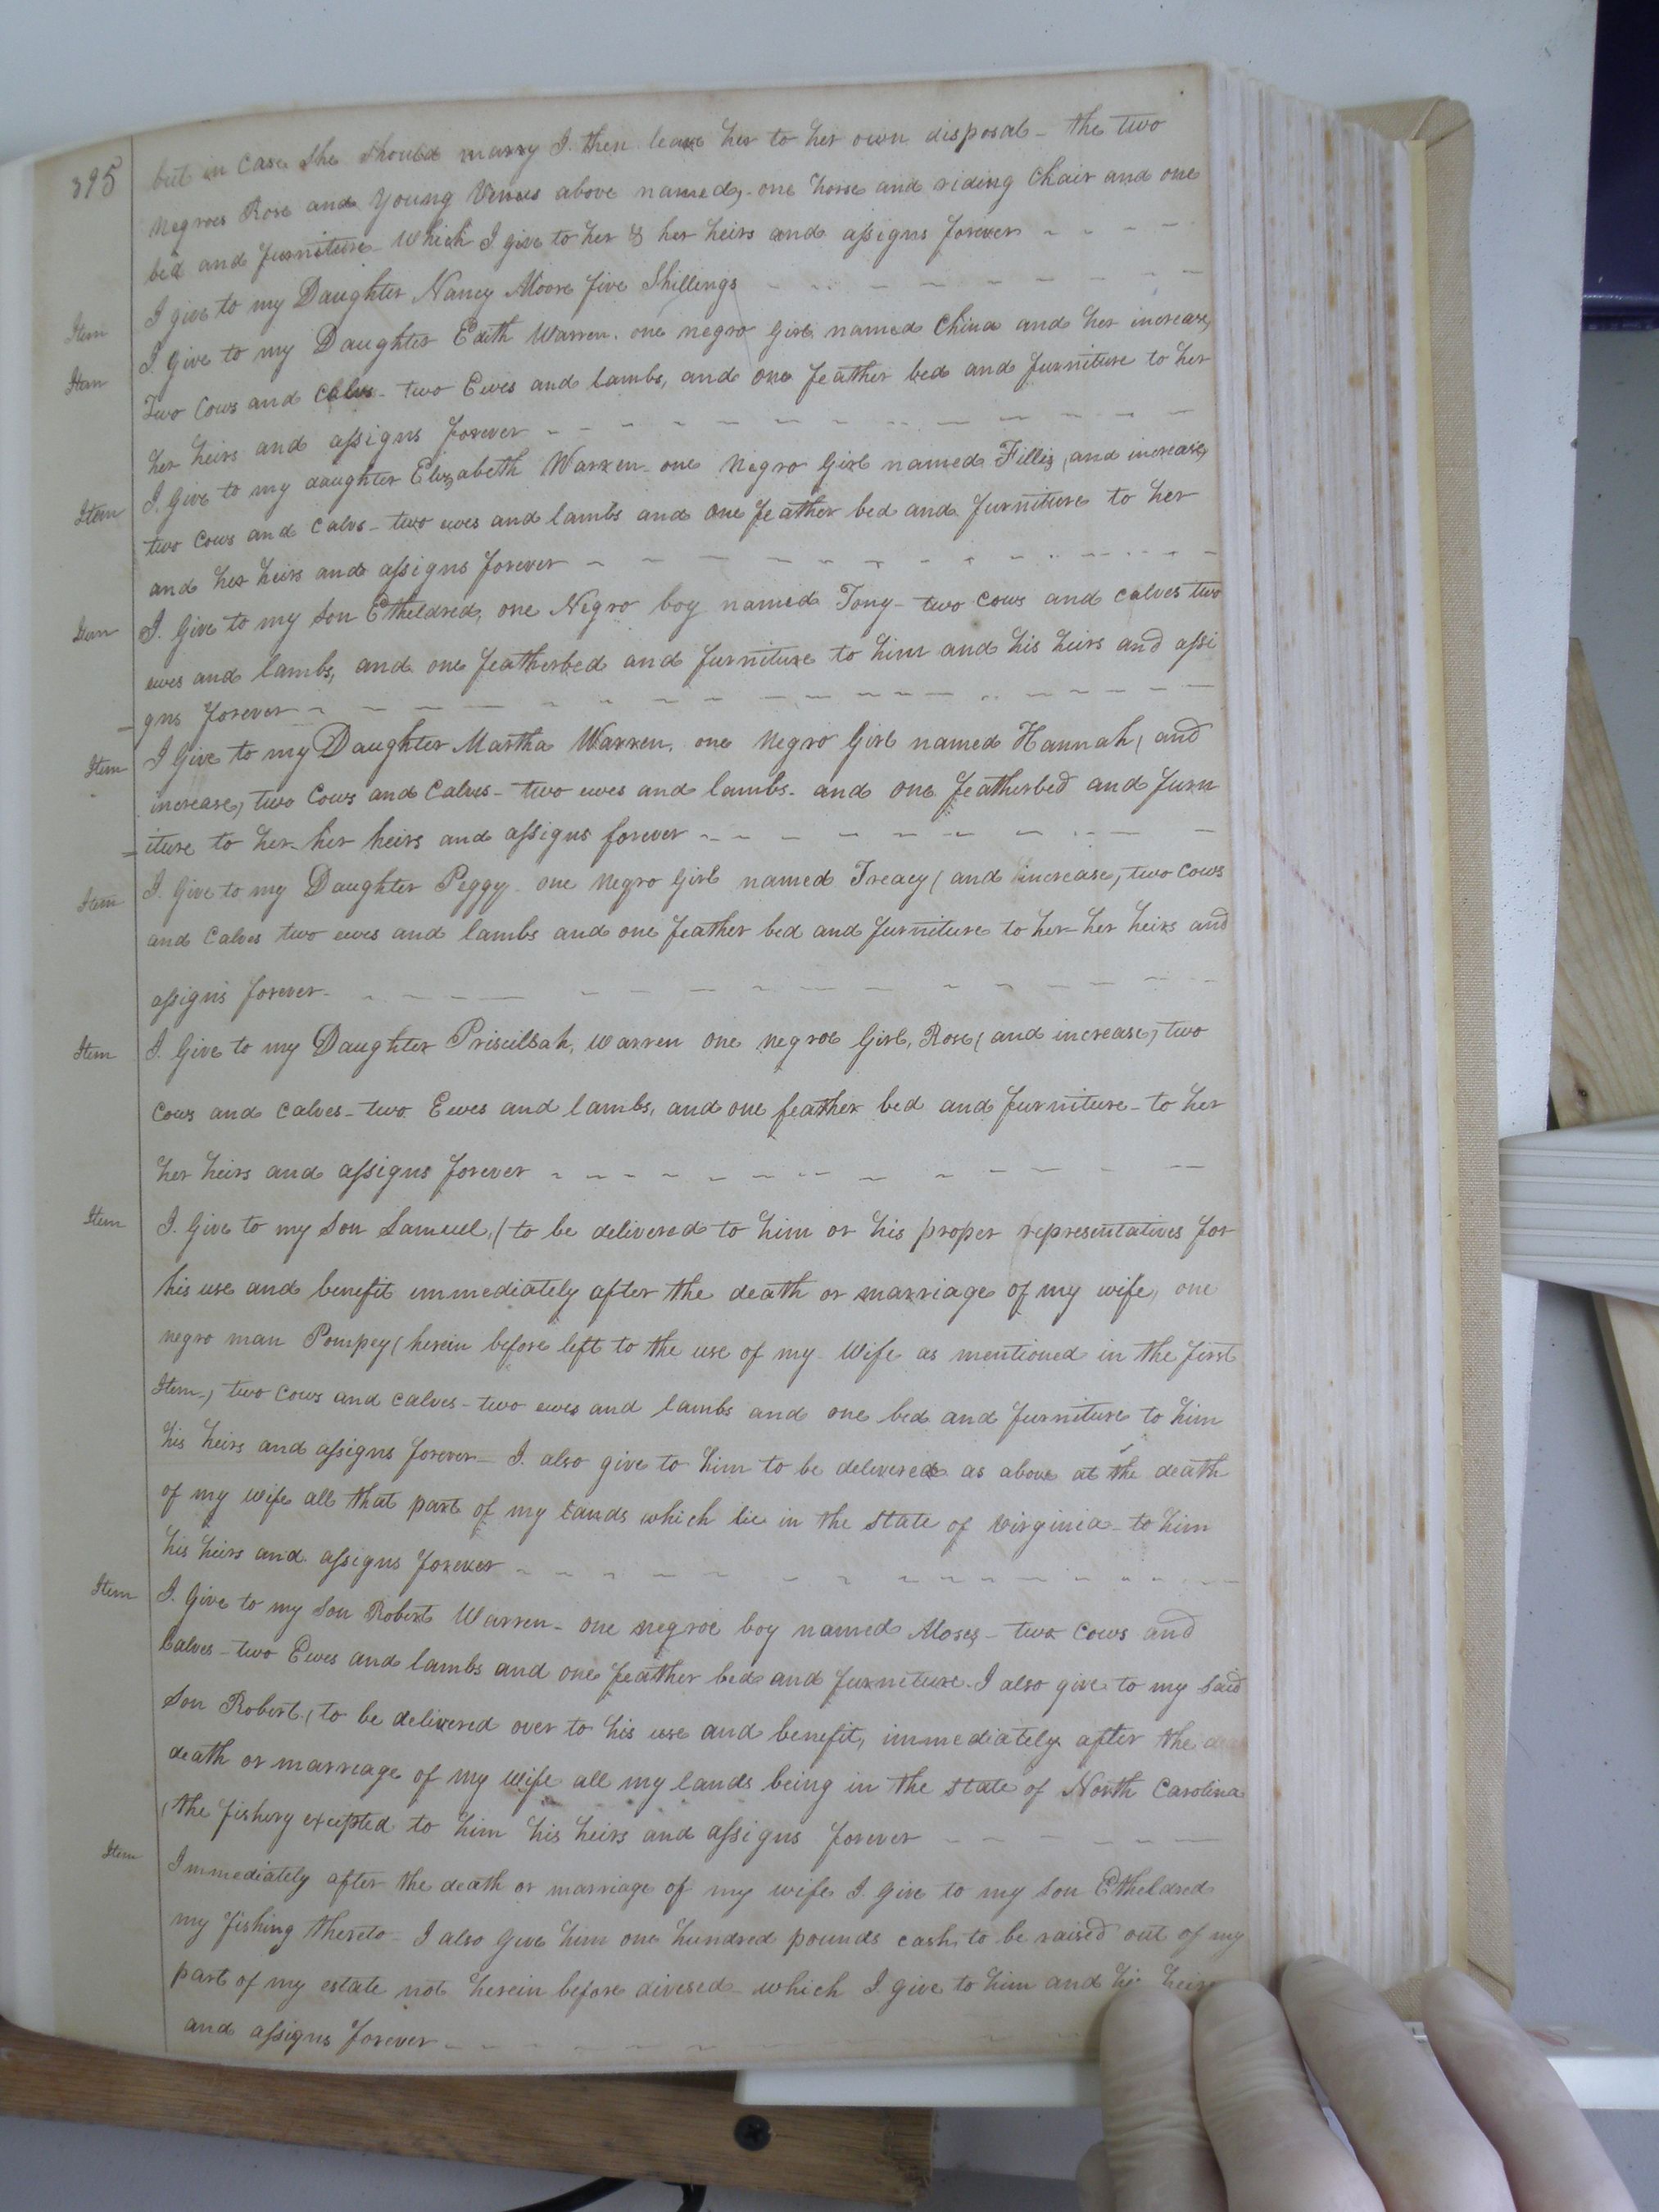 395
but in case she should marry I then leave her to her own disposal - the two
negroes Rose and Young Venus above named, - one horse and riding Chair and one
bed and furniture - which I give to her & her heirs and assigns forever
Item I give to my Daughter Nancy Moore five Shillings
Item I give to my Daughter Edith Warren. one negro girl named China and her increase,
Two Cows and Calvs - two Ewes and lambs, and one feather bed and furniture to her
her heirs and assigns forever
Item I give to my daughter Elizabeth Warren - one Negro Girl named Fillis, and increase,
two Cows and Calvs - two ewes and lambs and one feather bed and furniture to her
and her heirs and assigns forever
Item I Give to my Son Etheldred, one Negro boy named Tony - two Cows and calves two
ewes and lambs, and one featherbed and furniture to him and his heirs and assi
gns forever
Item I Give to my Daughter Martha Warren, one Negro Girl named Hannah, and
increase, two Cows and Calves - two ewes and lambs - and one featherbed and furn
iture to her - her heirs and assigns forever
Item I Give to my Daughter Peggy - one Negro Girl named Treacy (and increase, two Cows
and Calves two ewes and lambs and one feather bed and furniture to her - her heirs and
assigns forever -
Item I Give to my Daughter Priscillah, Warren one negroe Girl, Rose (and increase, two
Cows and Calves - two Ewes and lambs, and one feather bed and furniture - to her
her heirs and assigns forever
Item I Give to my Son Samuel, (to be delivered to him or his proper representatives for
his use and benefit immediately after the death or marriage of my wife, one
negro man Pompey (herein before left to the use of my Wife as mentioned in the first
Item -, two Cows and calves - two ewes and lambs and one bed and furniture to him
his heirs and assigns forever - I also give to him to be delivered as above at the death
of my wife all that part of my Lands which lie in the State of Virginia - to him
his heirs and assigns forever
Item I Give to my Son Robert Warren - one negroe boy named Moses - two Cows and
Calves - two Ewes and lambs and one feather bed and furniture - I also give to my Said
Son Robert, (to be delivered over to his use and benefit, immediately after the
death or marriage of my wife all my lands being in the State of North Carolina
(the fishery excepted to him his heirs and assigns forever
Item Immediately after the death or marriage of my wife I Give to my Son Etheldred
my fishing thereto - I also Give him one hundred pounds cash, to be raised out of my
part of my estate not herein before divised - which I give to him and his heirs
and assigns forever